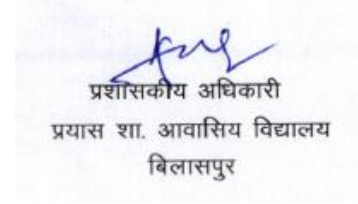 प्रशासकीय अधिकारी
प्रयास शा. आवासिय विद्यालय
बिलासपुर